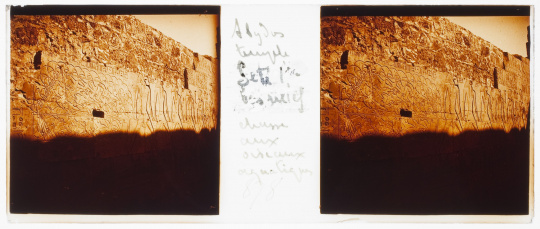 Abydos
temple
Seti 1er
bas relief
chasse
aux
oiseaux
aquatiques